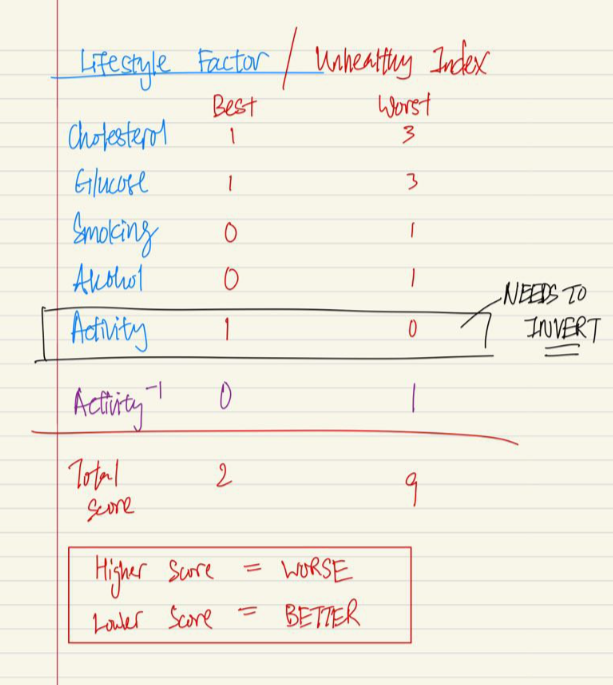 Lifestyle Factor / Unhealthy Index
Best Worst
Cholesterol 1 3
Glucose 1 3
Smoking 0 1
Alcohol 0 1
NEEDS TO
Activity 1 0 INVERT
Activity⁻¹ 0 1
Total 2 9
Score
Higher Score = WORSE
Lower Score = BETTER